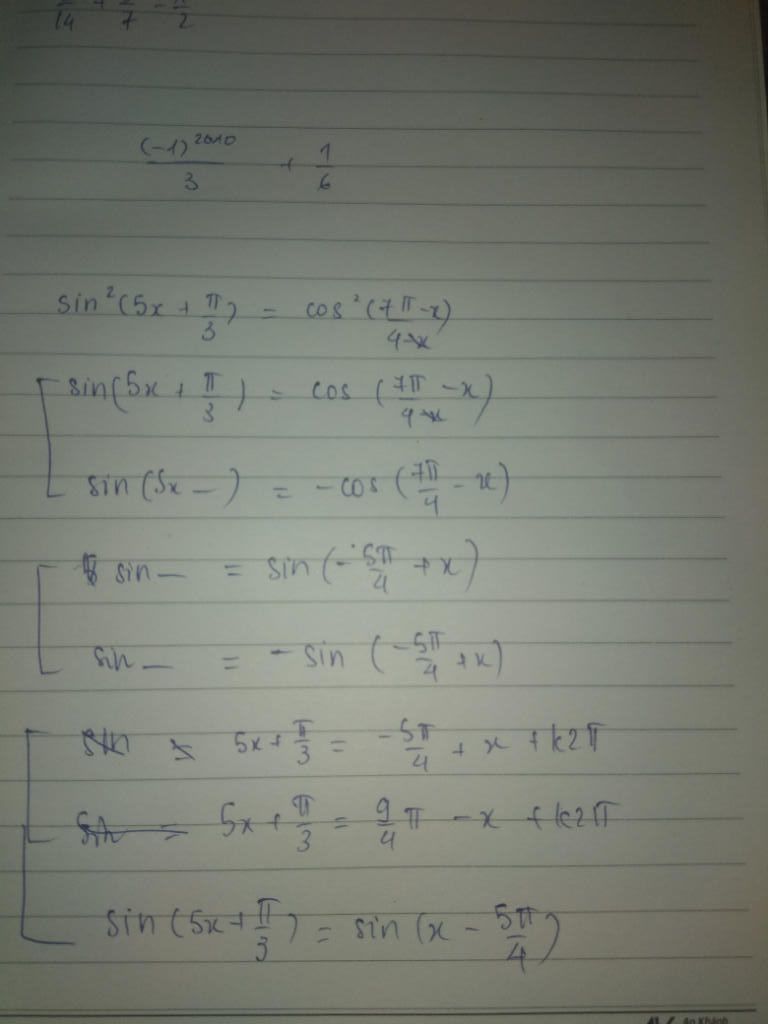 14 + 7 = 2
(-1)^2010/3 + 1/6
sin²(5x + π/3) = cos²(7π/4 - x)
sin(5x + π/3) = cos(7π/4 - x)
sin(5x —) = -cos(7π/4 - x)
sin — = sin(-5π/4 + x)
sin — = -sin(-5π/4 + x)
5x + π/3 = -5π/4 + x + k2π
5x + π/3 = 9/4 π - x + k2π
sin(5x + π/3) = sin(x - 5π/4)
An Khánh